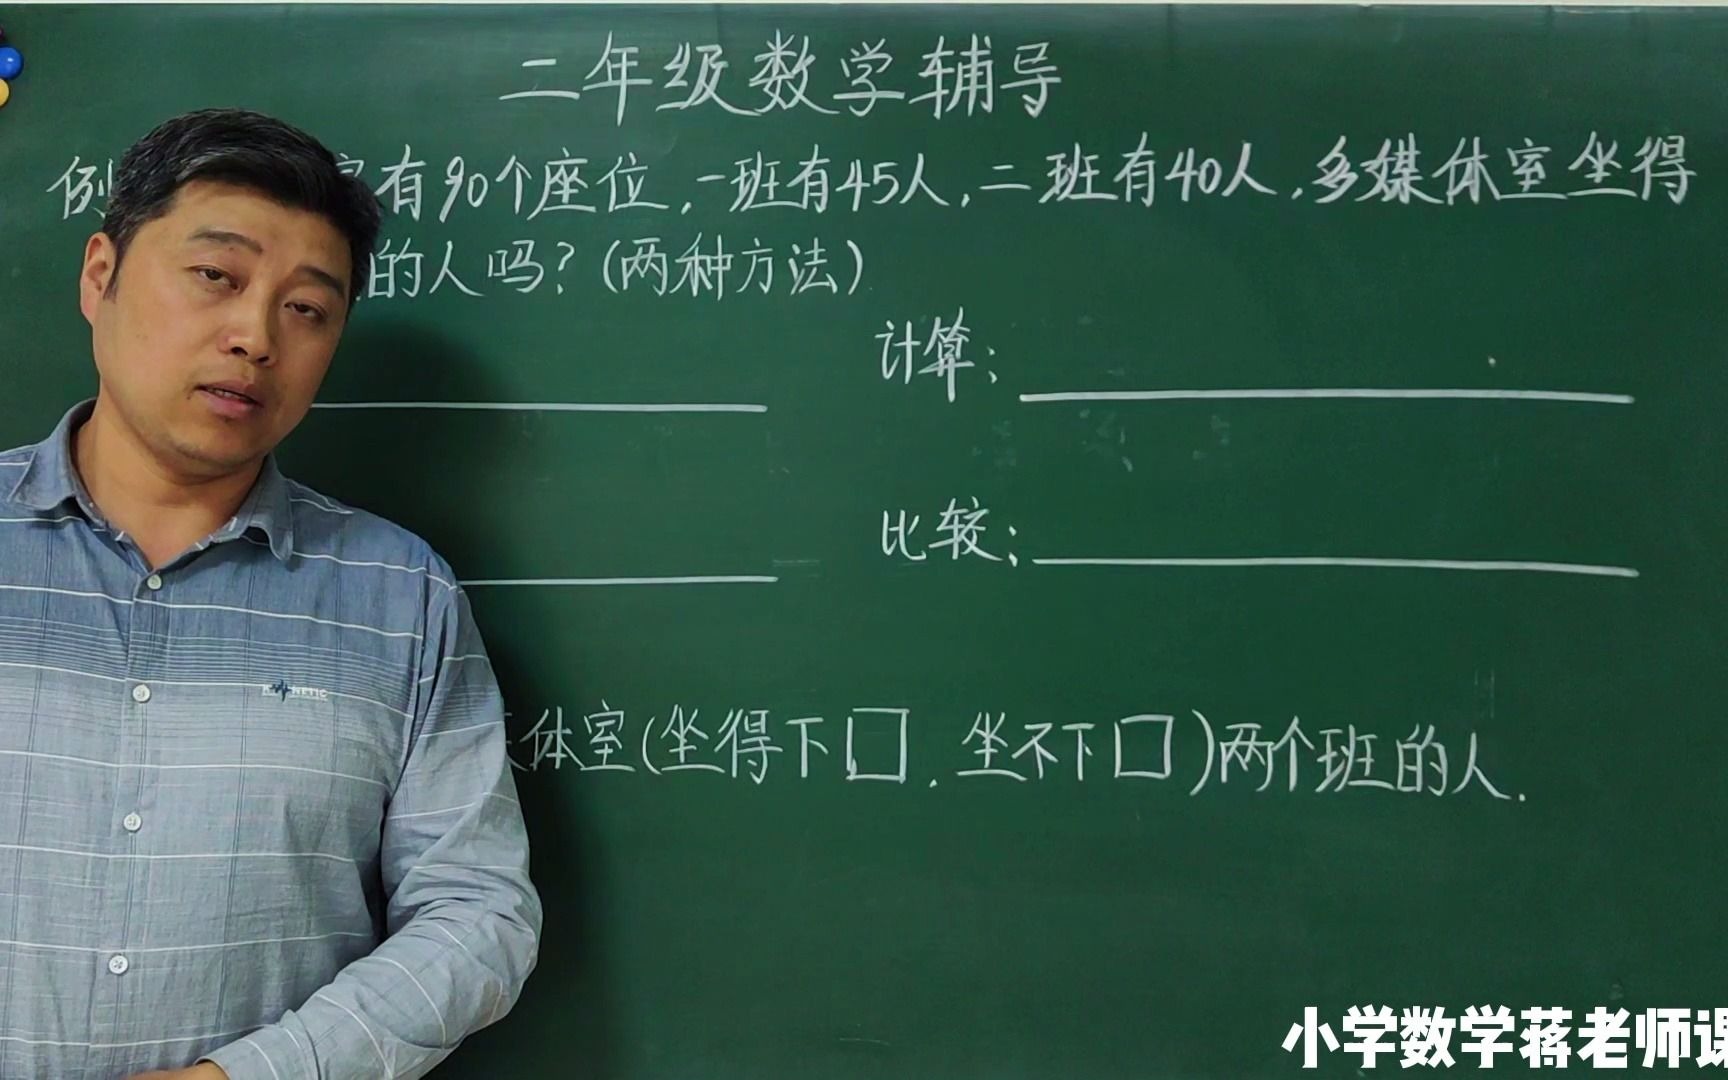 二年级数学辅导
例 室有90个座位,一班有45人,二班有40人,多媒体室坐得
的人吗?(两种方法)
计算:
比较:
体室(坐得下□.坐不下□)两个班的人.
NETIC
小学数学蒋老师课